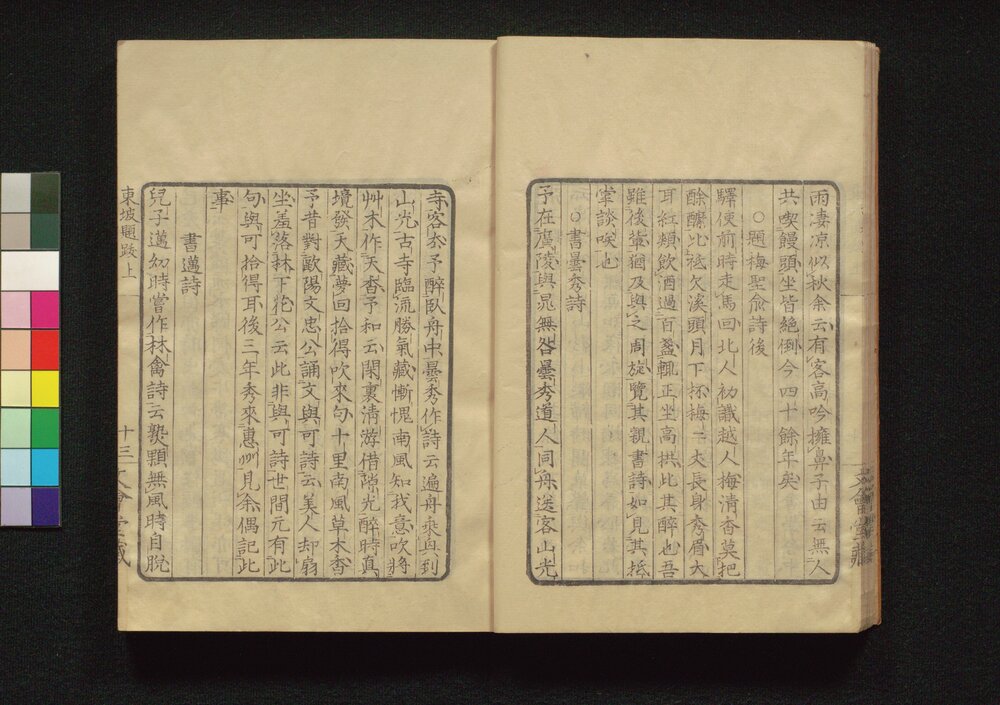 雨凄凉似秋余云有客高吟擁鼻子由云無人
共喫饅頭坐皆絕倒今四十餘年矣
○題梅聖兪詩後
驛使前時走馬回北人初識越人梅清香莫把
酴醿比袛欠溪頭月下杯梅二丈長身秀眉大
耳紅頰飲酒過百盞輒正坐高拱此其醉也吾
雖後輩猶及與之周旋覽其親書詩如見其抵
掌談咲也
○書曇秀詩
予在廣陵與晁無咎曇秀道人同舟送客山光
寺客去予醉臥舟中曇秀作詩云遍舟乘興到
山光古寺臨流勝氣藏慚愧南風知我意吹將
艸木作天香予和云閑裏清游借隙光醉時真
境發天藏夢回拾得吹來句十里南風草木香
予昔對歐陽文忠公誦文與可詩云美人却扇
坐羞落林下花公云此非與可詩世間元有此
句與可拾得耳後三年秀來惠州見余偶記此
事
書邁詩
兒子邁幼時嘗作林禽詩云熟顆無風時自脫
東坡題跋上
十三
文會堂藏